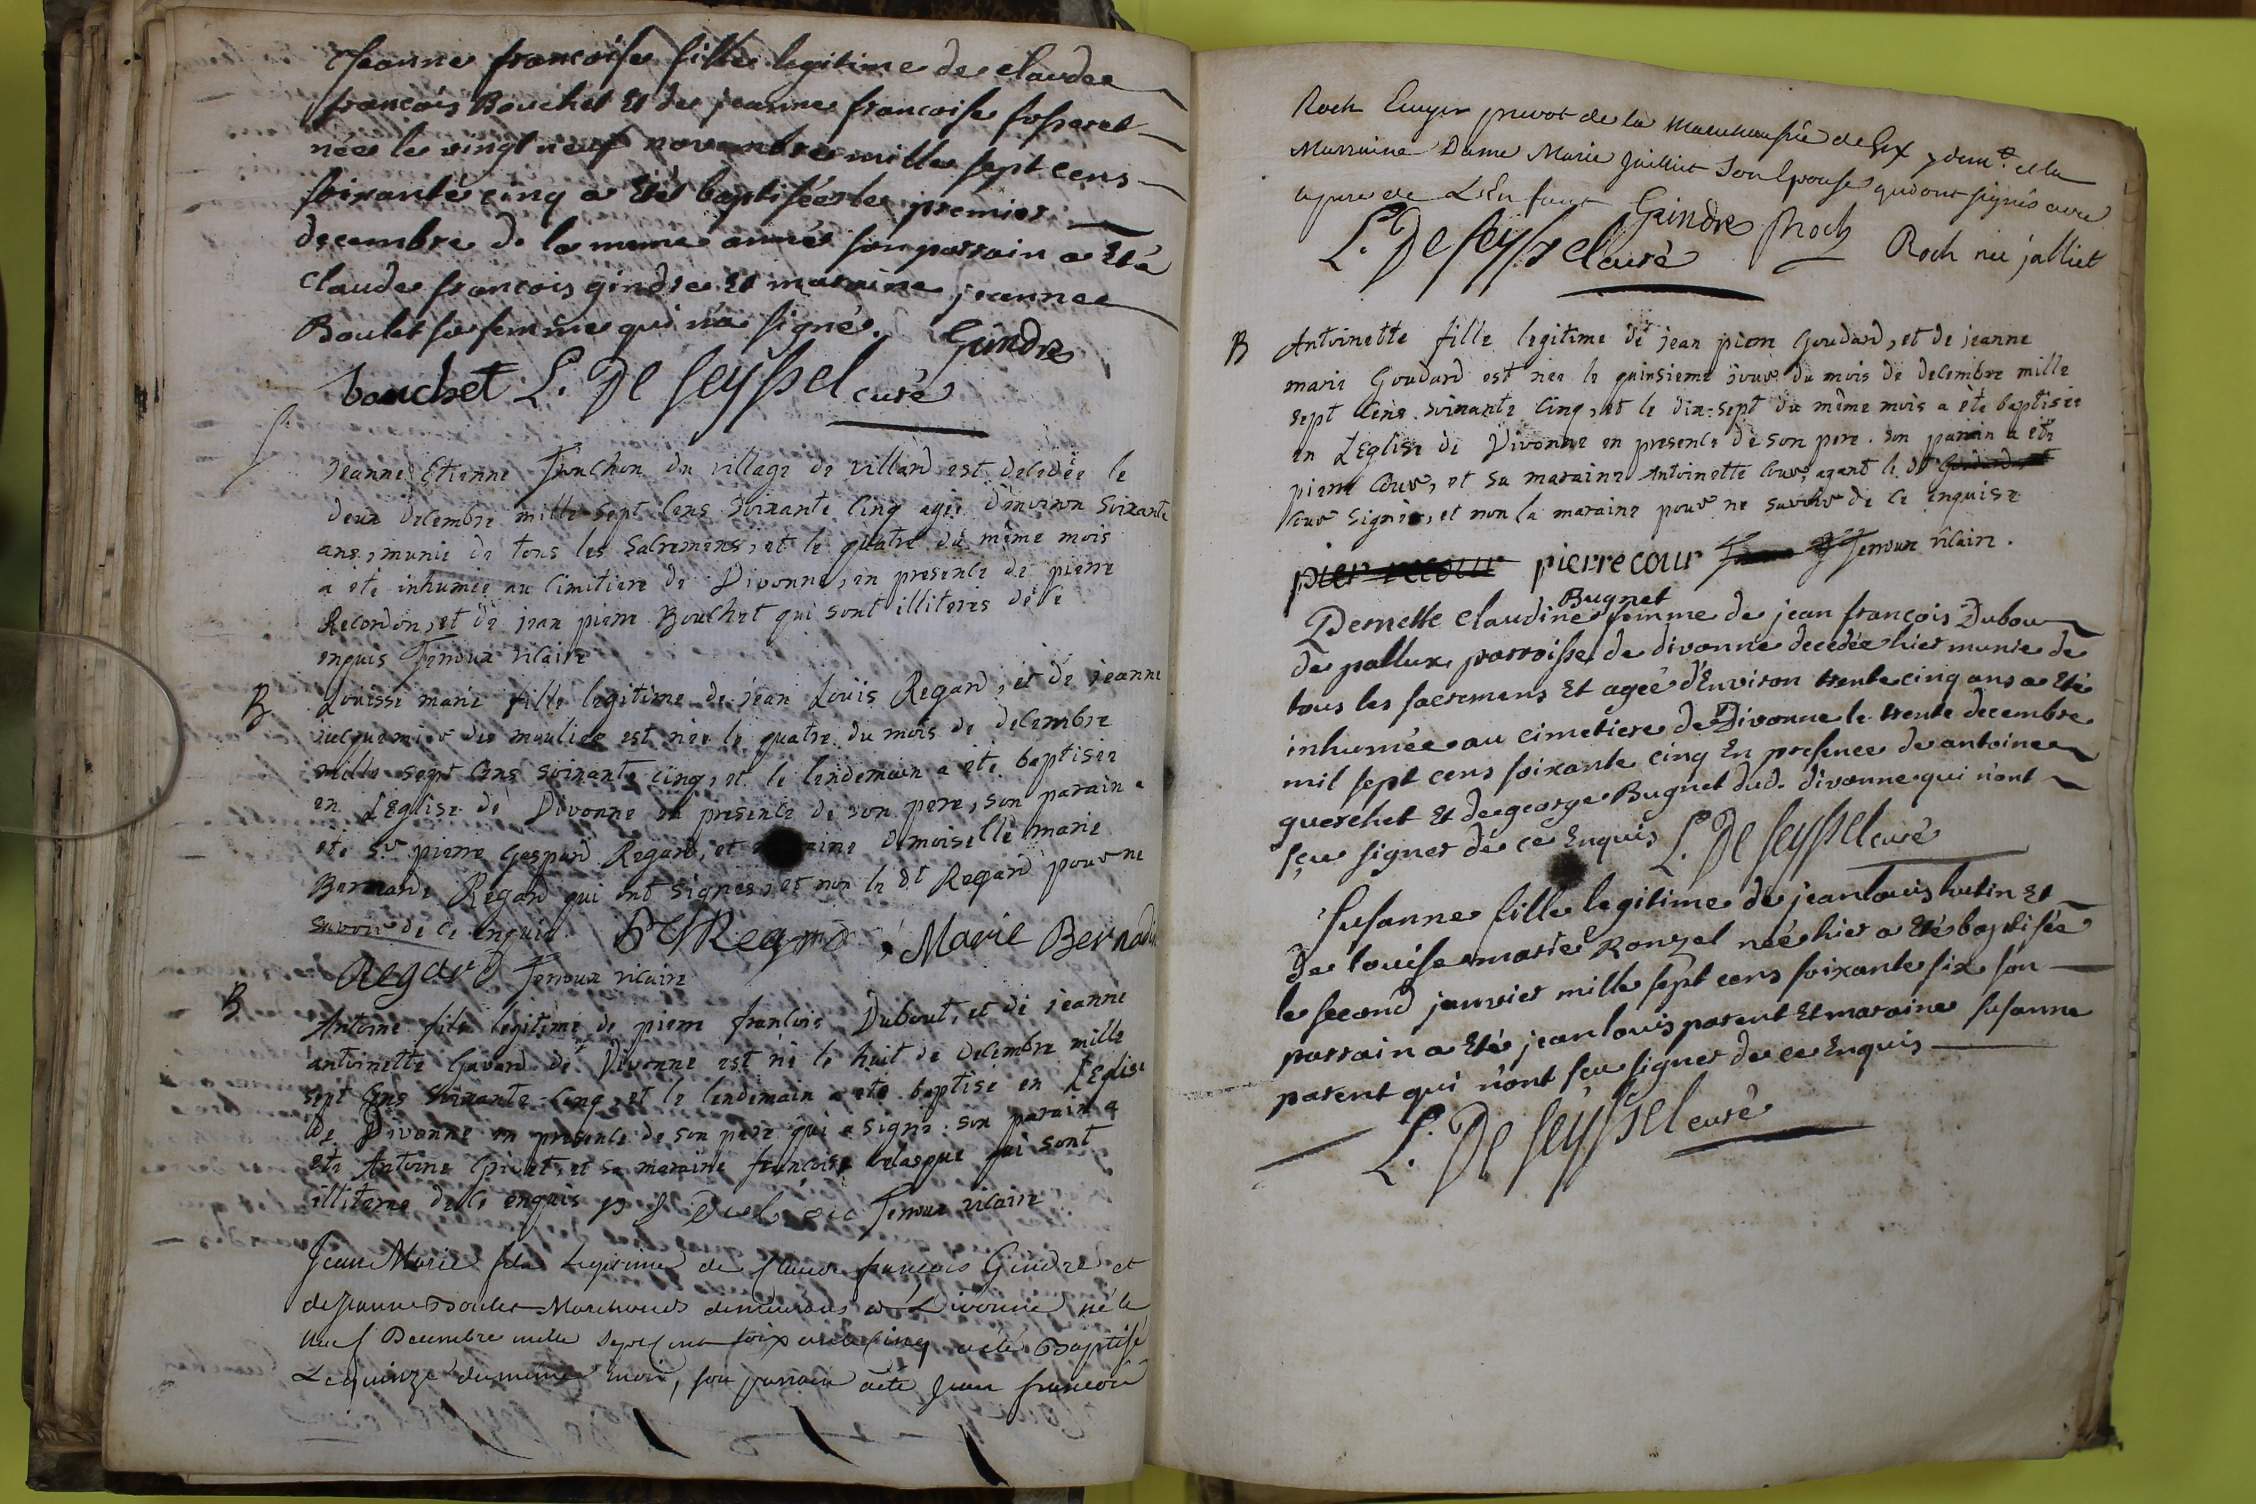 Jeanne françoise fille legitime de claude
françois Bouchet Et de jeanne françoise fosseret
née le vingt neuf novembre mille sept cens
soixante cinq a Eté baptisée le premier
decembre de la meme année son parrain a Eté
Claude francois gindre Et maraine jeanne
Boulet sa femme qui n'a signé. Gindre
bouchet L. De Seyssel curé
Jeanne Etienne du village de villard est decedée le
deux decembre mille sept cens soixante cinq agée d'environ soixante
ans, munie de tous les sacremens, et le quatre du même mois
a eté inhumée au cimitiere de Divonne, en presence de pierre
Recordon, et de jean pierre Bouchet qui sont illiteres de ce
enquis Ferroux vicaire
B Louisse marie fille legitime de jean Louis Regard, et de jeanne
est née le quatre du mois de decembre
mille sept cens soixante cinq, et le lendemain a eté baptisée
en L'Eglise de Divonne en presence de son pere, son parain a
eté Sr pierre Gaspard Regard, et demoiselle marie
Bernarde Regard qui ont signes, et non le dt Regard pour ne
savoir de ce enquis. Regard Marie Bernadi
Regard Ferroux vicaire
B Antoine fils legitime de pierre françois Dubout, et de jeanne
antoinette Gavard de Divonne est né le huit de decembre mille
sept cens soixante cinq, et le lendemain a eté baptisé en L'Eglise
de Divonne en presence de son pere qui a signé. son parain a
eté Antoine et sa maraine françoise qui sont
illiteres de ce enquis Ferroux vicaire
Jean Marie fils Legitime de Claude françois Gindre et
de Jeanne Boulet Marchands demeurans a Divonne né le
neuf Decembre mille Sept Cent soixante Cinq a eté Baptisé
Le quinze du même mois, son parrain a été Jean francois
Roch Ecuyer prevot de la Marechaussée de Gex y demt. et la
Marraine Dame Marie Jailliet Son Epouse qui ont signés avec
le pere de L'Enfant Gindre Roch
L. De Seyssel curé Roch née jalliet
B Antoinette fille legitime de jean pierre Goudard, et de jeanne
marie Goudard est née le quinsieme jour du mois de decembre mille
sept cens soixante cinq, et le dix-sept du même mois a eté baptisée
en L'Eglise de Divonne en presence de son pere. son parain a eté
pierre Cour, et sa maraine Antoinette Cour, ayant le dt
Cour signés, et non la maraine pour ne savoir de ce enquise
pierre cour pierre cour Ferroux vicaire.
Bugnet
Pernette Claudine femme de jean françois Dubou
de pallux, parroisse de divonne decedée hier munie de
tous les sacremens Et agée d'Environ trente cinq ans a Eté
inhumée au cimetiere de Divonne le trente decembre
mil sept cens soixante cinq En presence de antoine
querchet Et de george Bugnet dud. divonne qui n'ont
sçu signer de ce Enquis L. De Seyssel curé
Susanne fille legitime de jean louis hutin Et
de louise marie Ronzel née hier a Eté baptisée
le second janvier mille sept cens soixante six son
parrain a Eté jean louis parent Et maraine susanne
parent qui n'ont sçu signer de ce Enquis
L. De Seyssel curé